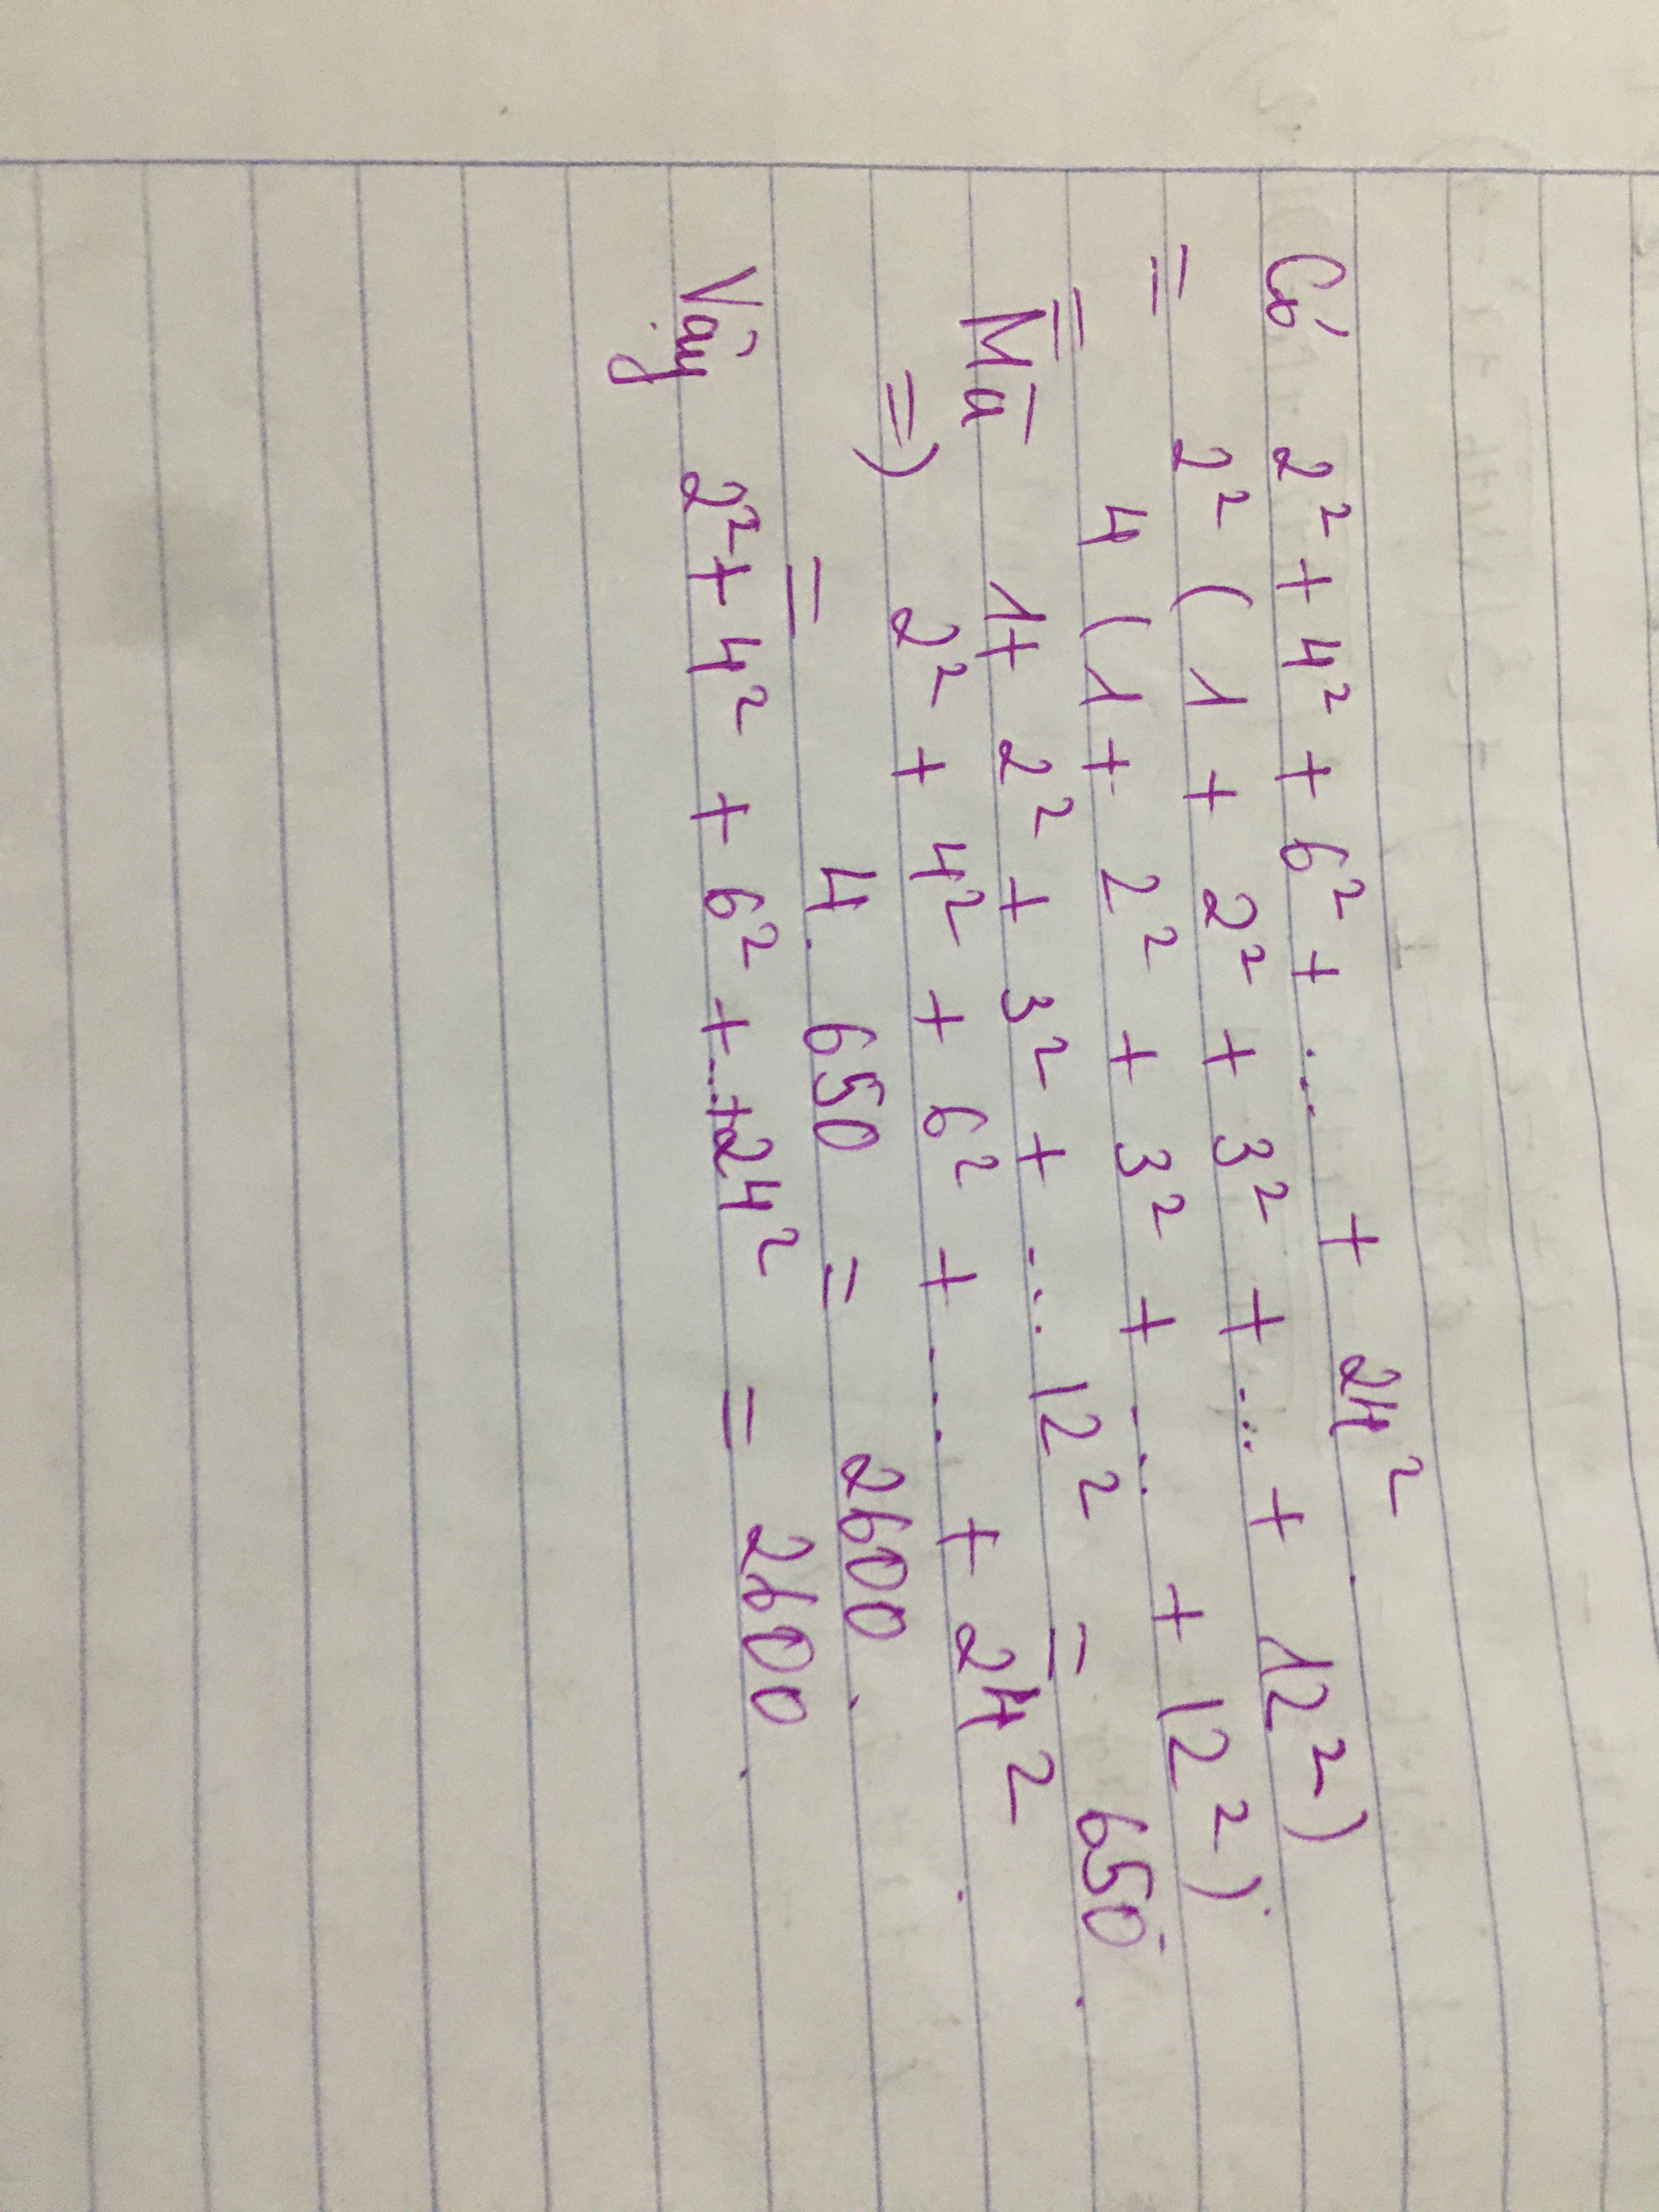 Có 2² + 4² + 6² + ... + 24²
= 2² (1 + 2² + 3² + ... + 12²)
= 4 (1 + 2² + 3² + ... + 12²)
Mà 1 + 2² + 3² + ... 12² = 650
=) 2² + 4² + 6² + ... + 24²
= 4 . 650 = 2600
Vậy 2² + 4² + 6² + ... + 24² = 2600